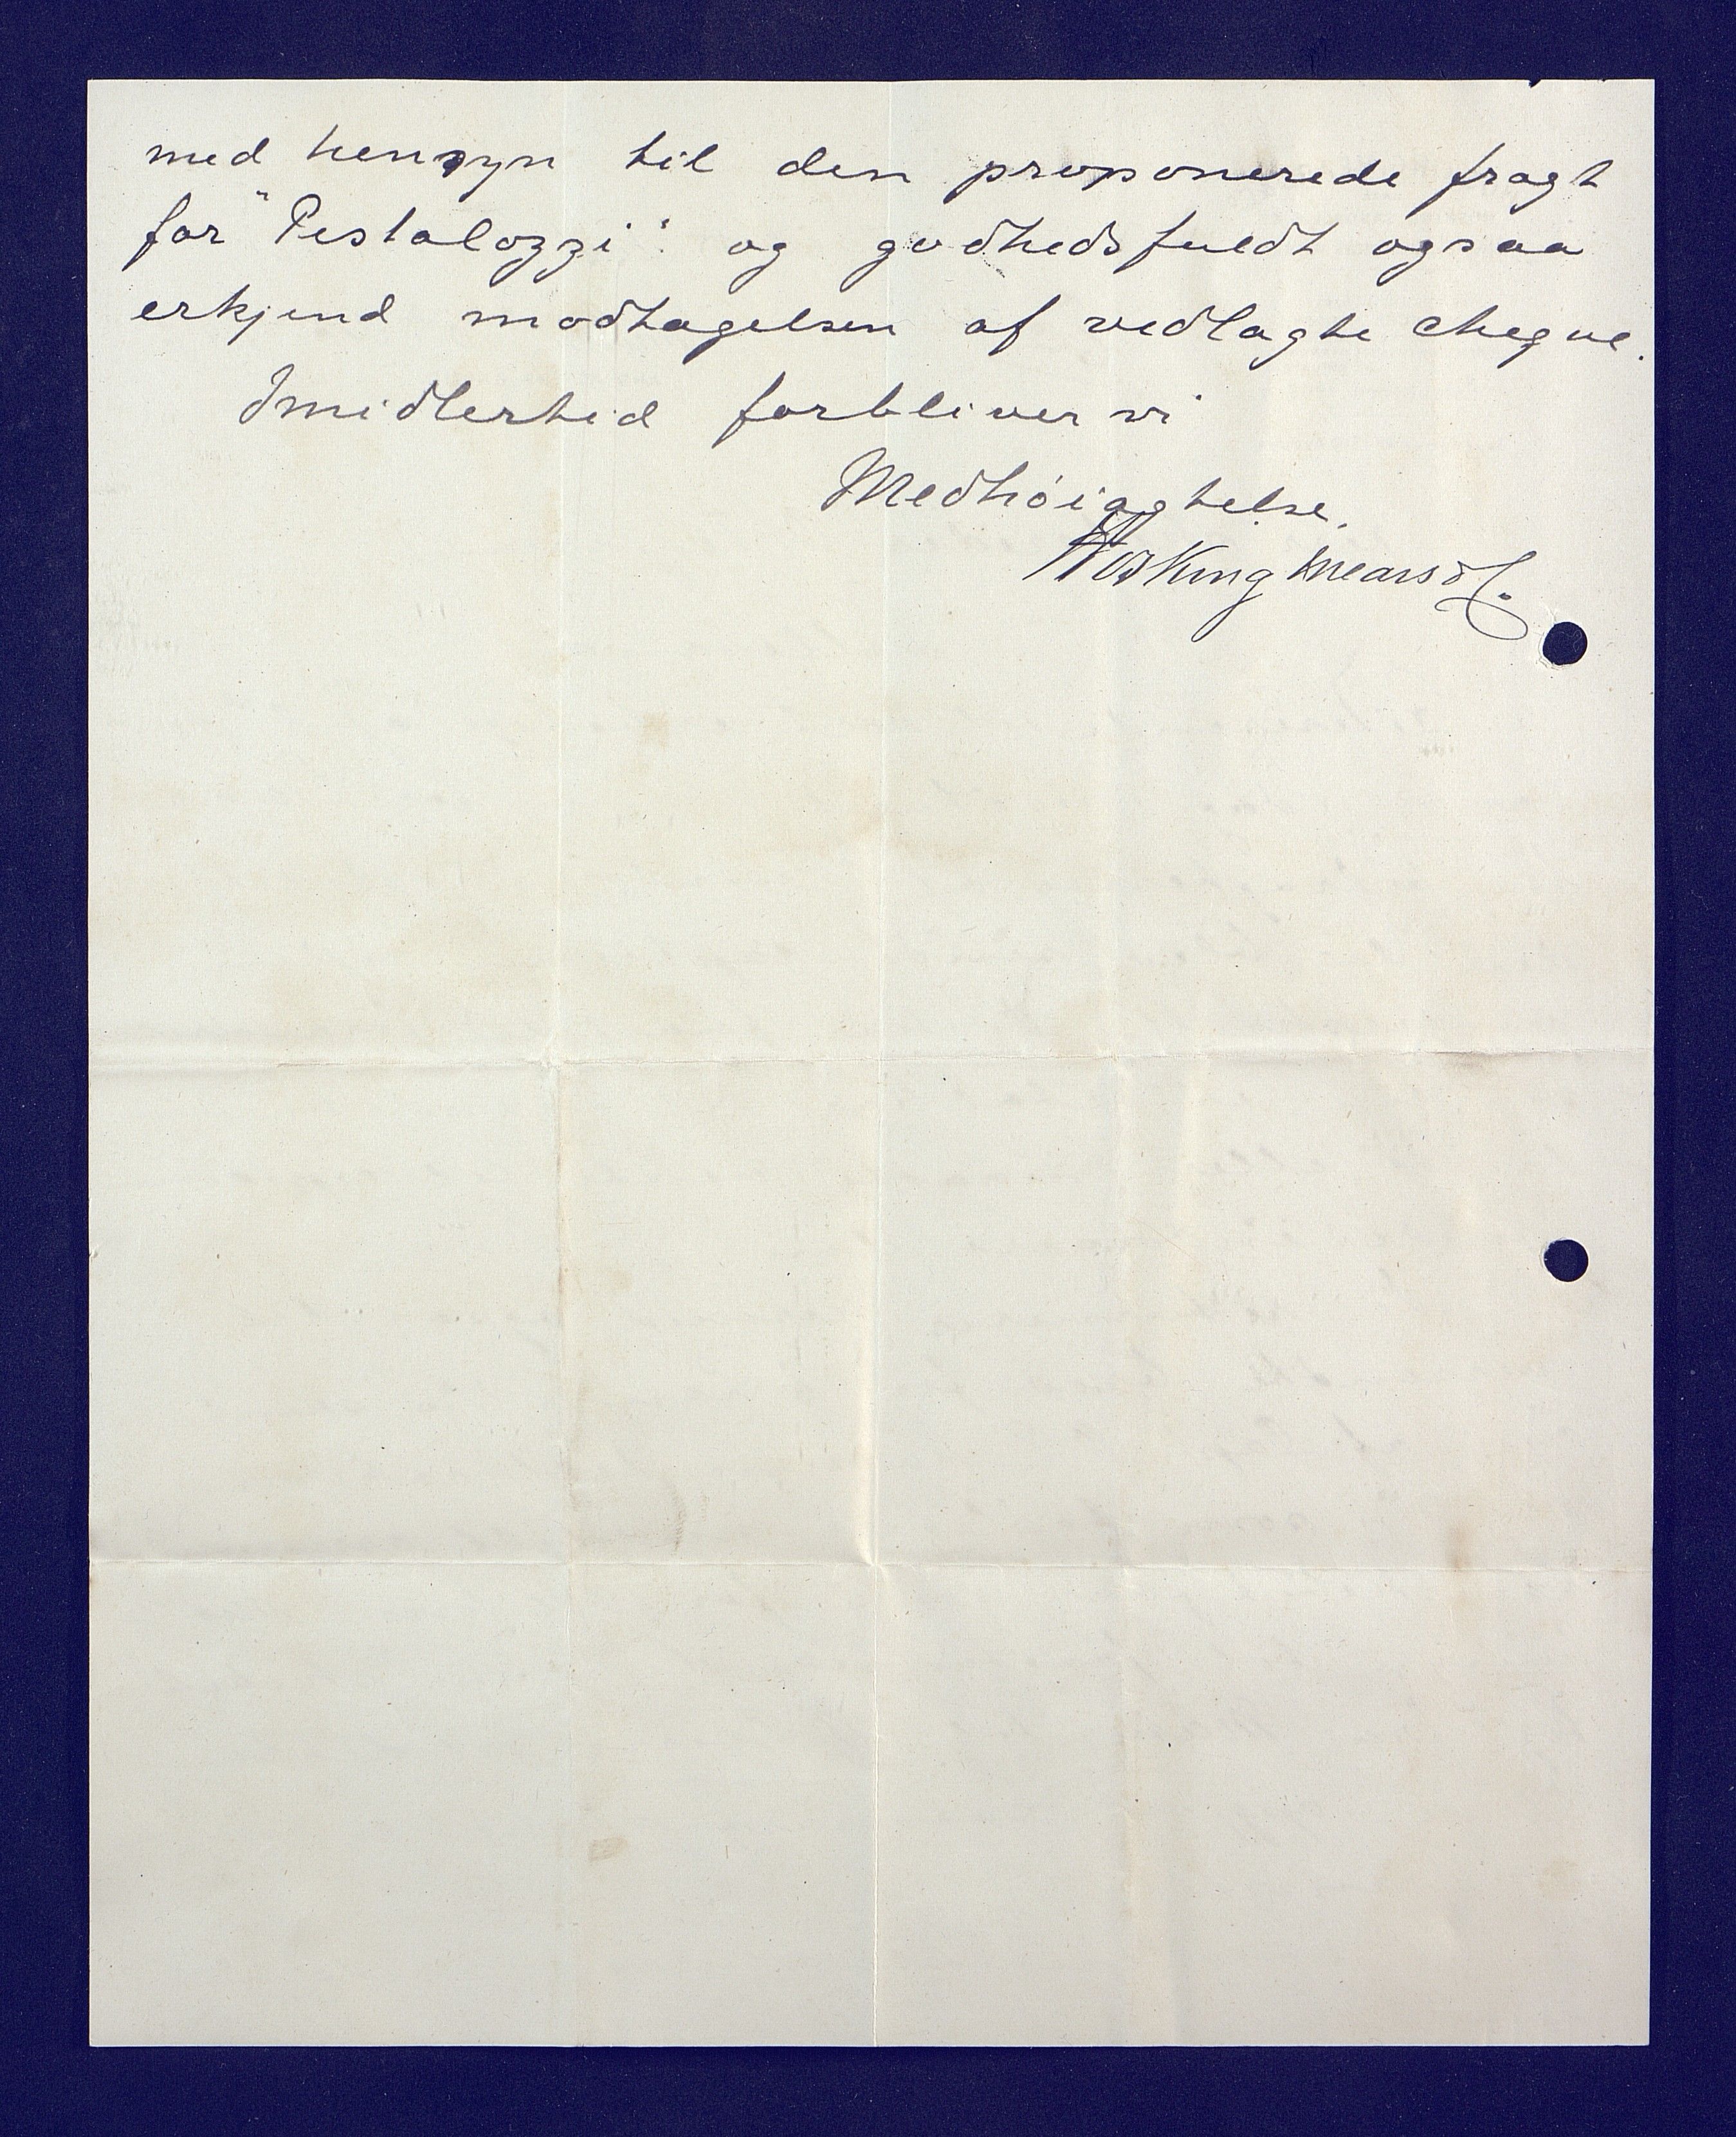 med hensyn til den proponerede fragt
for "Pestalozzi" og godhedsfuldt ogsaa
erkjend modtagelsen af vedlagte cheque.
Imidlertid forbliver vi
Med høiagtelse.
King Mears &